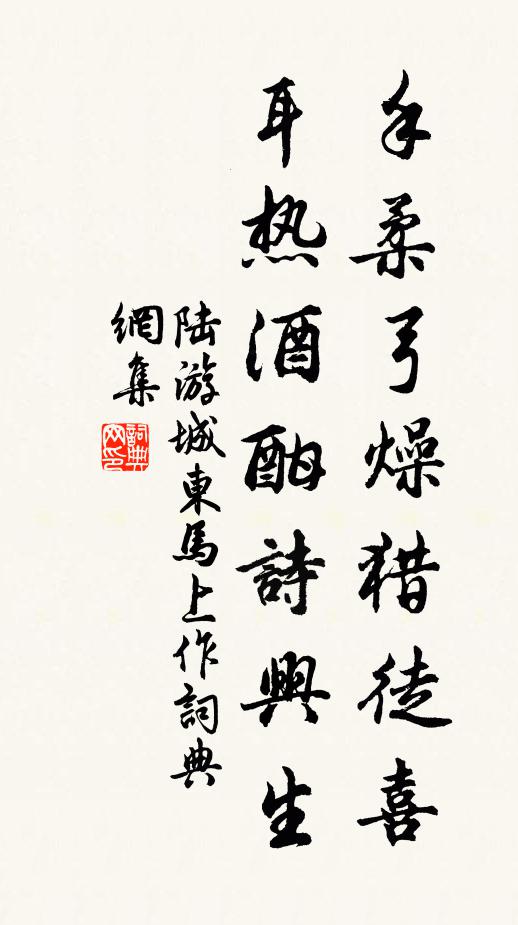 手柔弓燥猎徒喜
耳热酒酣詩興生
陆游城東馬上作詞典
網集
詞典
网印